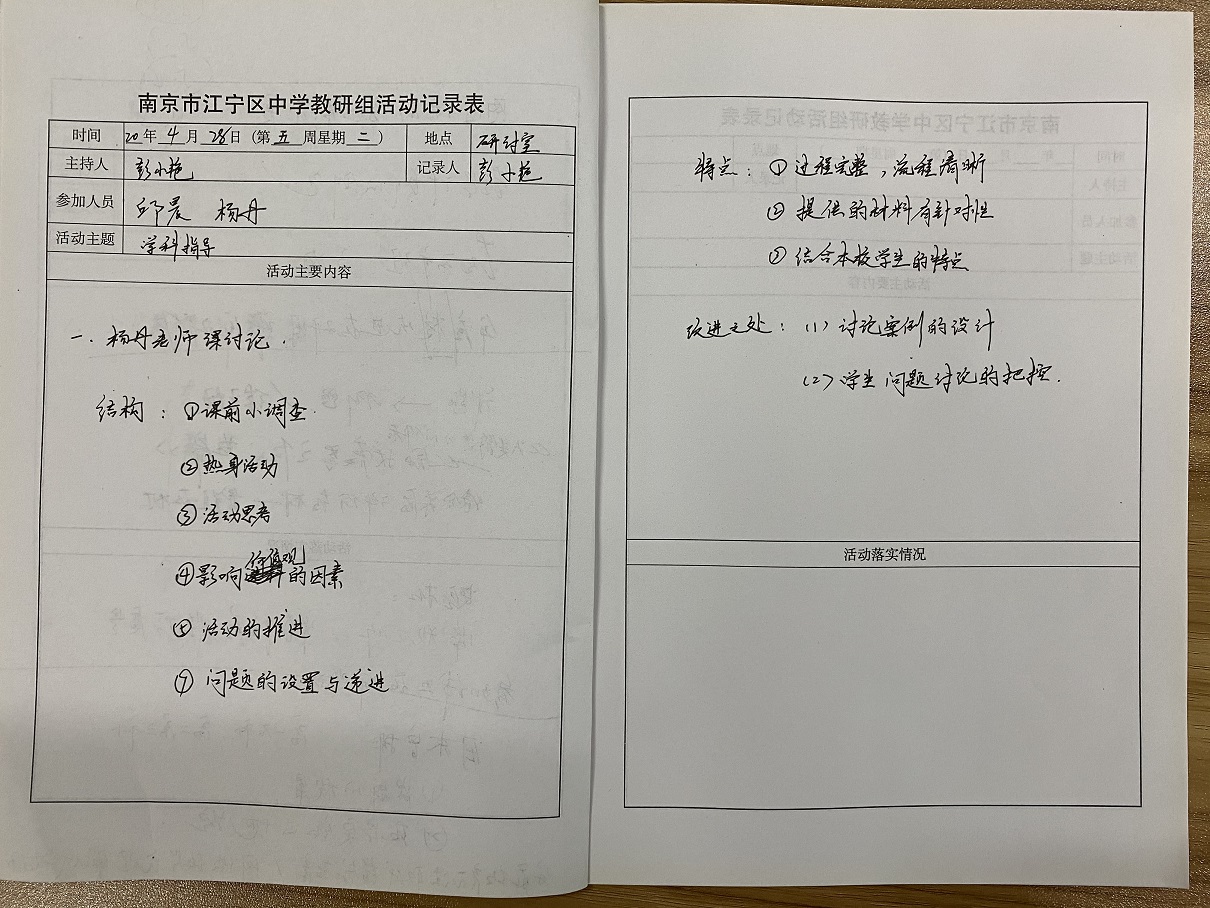 南京市江宁区中学教研组活动记录表
时间 20年 4 月 28日 (第 五 周星期 二 ) 地点 研讨室
主持人 彭小艳 记录人 彭小艳
参加人员 邱晨 杨丹
活动主题 学科指导
活动主要内容
一.杨丹老师课讨论.
结构:①课前小调查.
②热身活动
③活动思考
价值观
④影响的因素
⑤活动的推进
⑦问题的设置与递进
特点:①过程完整,流程清晰
②提供的材料有针对性
③结合本校学生的特点
改进之处:(1)讨论案例的设计
(2)学生问题讨论的把控.
活动落实情况